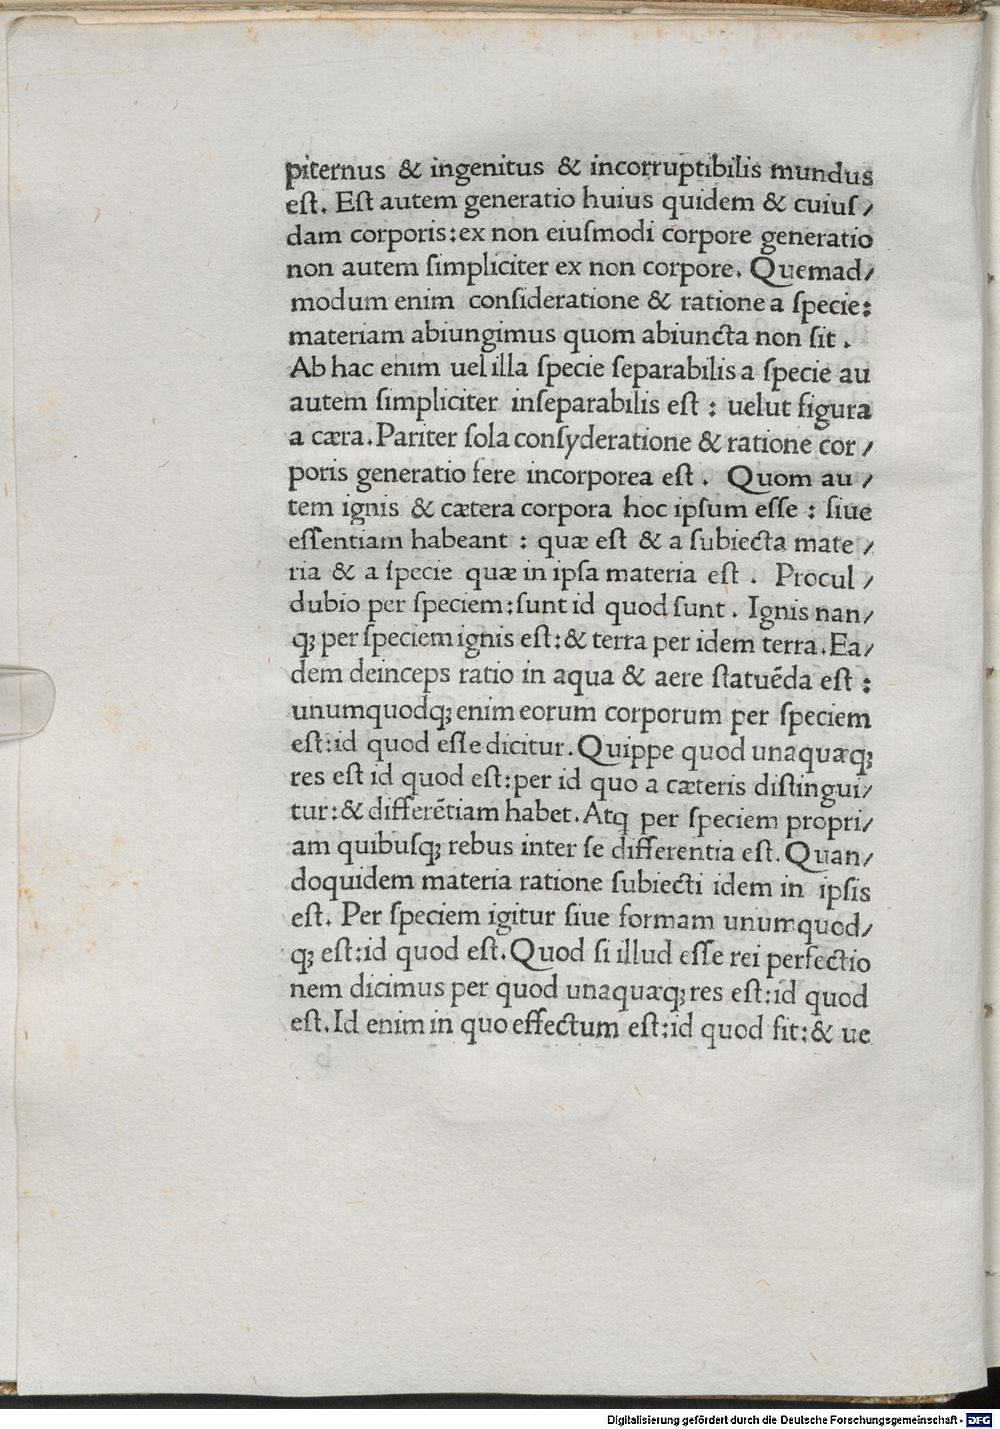 piternus & ingenitus & incorruptibilis mundus
eſt. Eſt autem generatio huius quidem & cuiuſ/
dam corporis:ex non eiuſmodi corpore generatio
non autem ſimpliciter ex non corpore. Quemad/
modum enim conſideratione & ratione a ſpecie:
materiam abiungimus quom abiuncta non ſit.
Ab hac enim uel illa ſpecie ſeparabilis a ſpecie au
autem ſimpliciter inſeparabilis eſt : uelut figura
a cæra. Pariter ſola conſyderatione & ratione cor/
poris generatio fere incorporea eſt. Quom au/
tem ignis & cætera corpora hoc ipſum eſſe : ſiue
eſſentiam habeant : quæ eſt & a ſubiecta mate/
ria & a ſpecie quæ in ipſa materia eſt. Procul/
dubio per ſpeciem:ſunt id quod ſunt. Ignis nan/
qꝫ per ſpeciem ignis eſt:& terra per idem terra. Ea/
dem deinceps ratio in aqua & aere ſtatuēda eſt :
unumquodqꝫ enim eorum corporum per ſpeciem
eſt:id quod eſſe dicitur. Quippe quod unaquæqꝫ
res eſt id quod eſt:per id quo a cæteris diſtingui/
tur:& differētiam habet. Atqꝫ per ſpeciem propri/
am quibuſqꝫ rebus inter ſe differentia eſt. Quan/
doquidem materia ratione ſubiecti idem in ipſis
eſt. Per ſpeciem igitur ſiue formam unumquod/
qꝫ eſt:id quod eſt. Quod ſi illud eſſe rei perfectio
nem dicimus per quod unaquæqꝫ res eſt:id quod
eſt. Id enim in quo effectum eſt:id quod fit:& ue
Digitalisierung gefördert durch die Deutsche Forschungsgemeinschaft - DFG